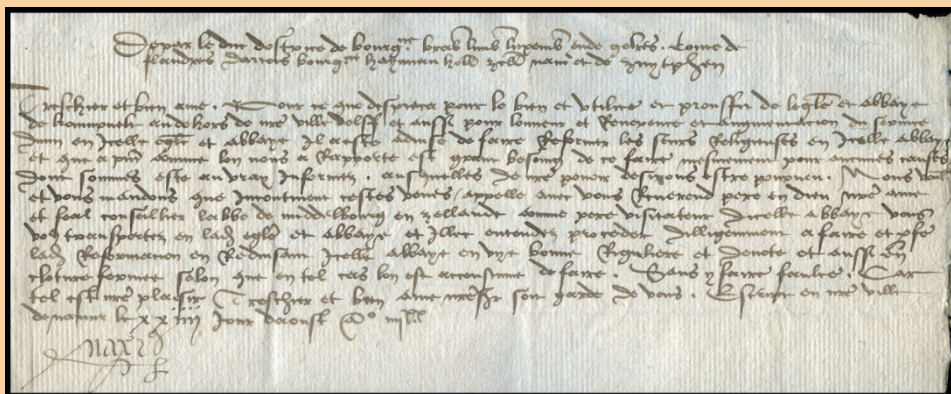 De par le duc dostrice de bourgne brab lemb luxemb ende gelres. Conte de
flandres dartois bourgne haynnau holl zell namr et de zuytphen
Treschier et bien ame. Pour ce que despieca pour le bien et utilite et prouffit de leglise et abbaye
de ... audehors de nre ville dolsst et aussi pour lonneur et Reverence et augmentacion du service
divin en Icelle eglise et abbaye Il a este advise de faire Reformer les seurs Religieuses en Icelle abbaye
et que a pnt comme lon nous a Rapporte est grant besoing de ce faire mesmement pour aucunes causes
dont sommes este au vray Informez. ausquelles de nre povoir desirons estre pourveu. Nous voulons
et vous mandons que Incontinent cestes veues, appelle avec vous Reverend pere en dieu nre ame
et feal conseillier labbe de middelbourg en zellande comme pere visitateur dicelle abbaye vous
vos transportez en lad eglise et abbaye et Illec entendez proceder dilligemment a faire et pfe
lad Reformacion en Reduisant Icelle abbaye en une bonne Reguliere et devote et aussi en
cloture fermee selon que en tel cas lon est accoustume de faire. Sans y faire faulte. Car
tel est nre plaisir Treschier et bien ame nresr soit garde de vous. Escript en nre ville
danvers le xxiiij Jour daoust